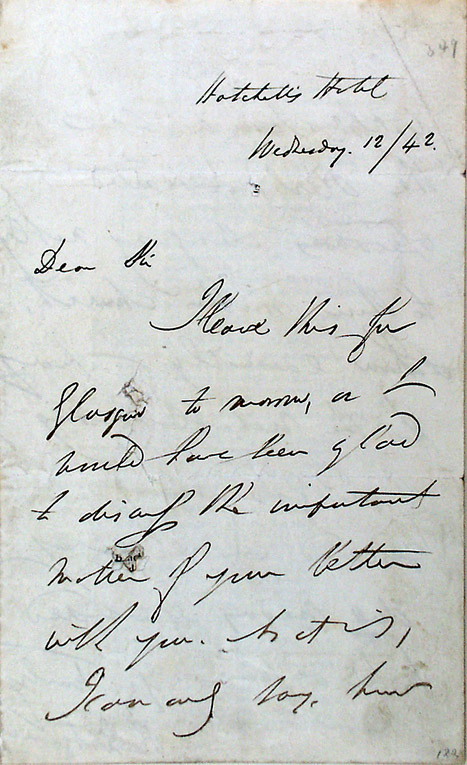 349
Hatchett's Hotel
Wednesday. 12/42.
Dear Sir
I leave this for
Glasgow to morrow, or I
would have been glad
to discuss the important
matter of your letter
with you. As it is,
I can only say, how
122